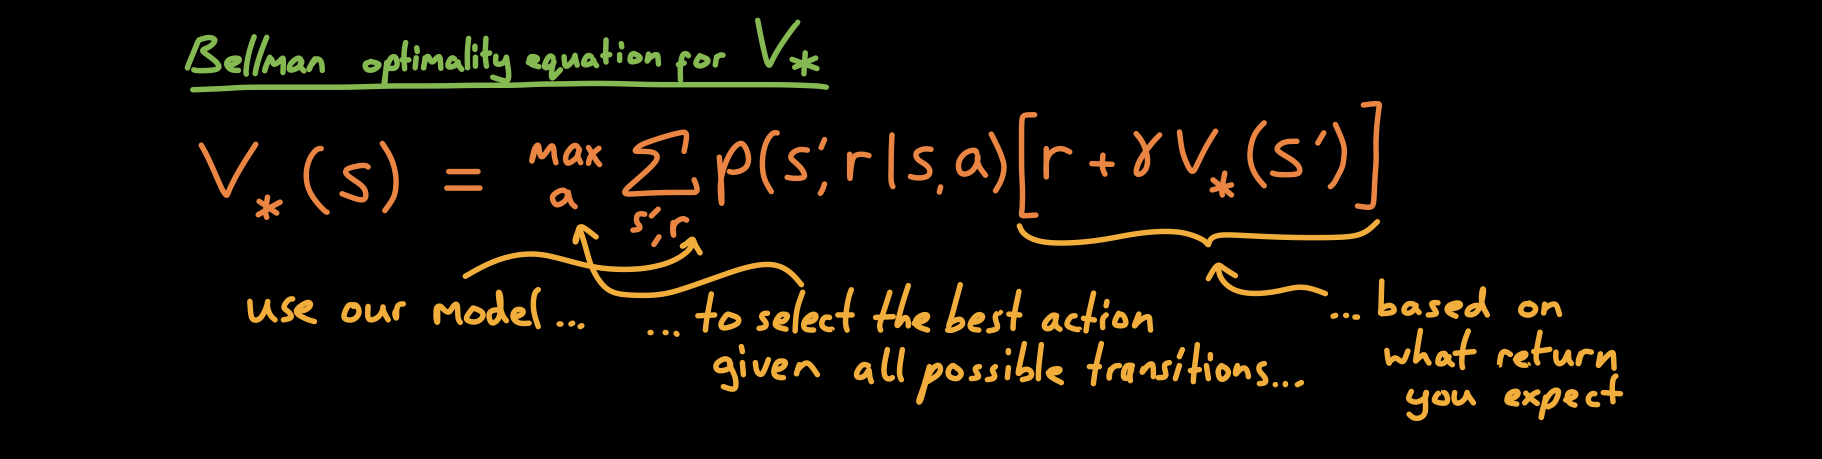 Bellman optimality equation for V*
V*(s) = max a ∑ s', r p(s', r | s, a) [r + γ V*(s')]
use our model...
... to select the best action
given all possible transitions...
... based on
what return
you expect